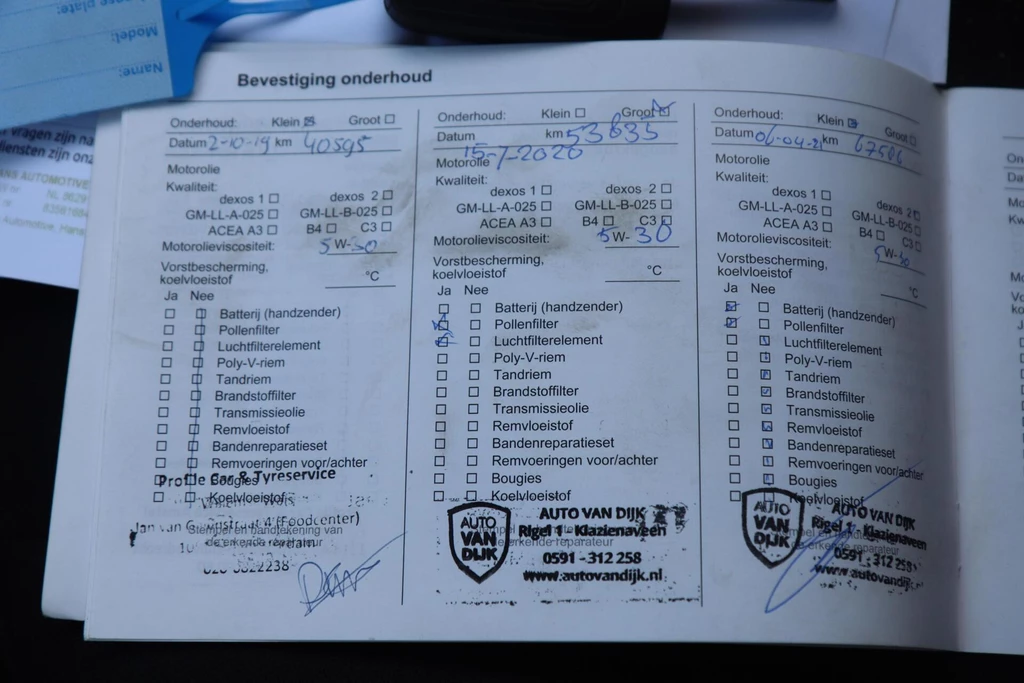 Model:
Name:
vragen zijn na
diensten zijn onz
Bevestiging onderhoud
Onderhoud: Klein Groot
Datum 2-10-19 km 40595
Motorolie
Kwaliteit:
dexos 1 dexos 2
GM-LL-A-025 GM-LL-B-025
ACEA A3 B4 C3
Motorolieviscositeit: 5W-30
Vorstbescherming,
koelvloeistof °C
Ja Nee
Batterij (handzender)
Pollenfilter
Luchtfilterelement
Poly-V-riem
Tandriem
Brandstoffilter
Transmissieolie
Remvloeistof
Bandenreparatieset
Remvoeringen voor/achter
Bougies
Koelvloeistof
Profile Car & Tyreservice
(Foodcenter)
Stempel en handtekening van
de erkende reparateur
Onderhoud: Klein Groot
Datum km 53635
15-7-2020
Motorolie
Kwaliteit:
dexos 1 dexos 2
GM-LL-A-025 GM-LL-B-025
ACEA A3 B4 C3
Motorolieviscositeit: 5W-30
Vorstbescherming,
koelvloeistof °C
Ja Nee
Batterij (handzender)
Pollenfilter
Luchtfilterelement
Poly-V-riem
Tandriem
Brandstoffilter
Transmissieolie
Remvloeistof
Bandenreparatieset
Remvoeringen voor/achter
Bougies
Koelvloeistof
AUTO VAN DIJK
AUTO VAN DIJK
Rigel 1 - Klazienaveen
0591 - 312 258
www.autovandijk.nl
Onderhoud: Klein Groot
Datum 06-04-21 km 67506
Motorolie
Kwaliteit:
dexos 1 dexos 2
GM-LL-A-025 GM-LL-B-025
ACEA A3 B4 C3
Motorolieviscositeit: 5W-30
Vorstbescherming,
koelvloeistof °C
Ja Nee
Batterij (handzender)
Pollenfilter
Luchtfilterelement
Poly-V-riem
Tandriem
Brandstoffilter
Transmissieolie
Remvloeistof
Bandenreparatieset
Remvoeringen voor/achter
Bougies
Koelvloeistof
AUTO VAN DIJK
AUTO VAN DIJK
Rigel 1 - Klazienaveen
0591 - 312 258
www.autovandijk.nl